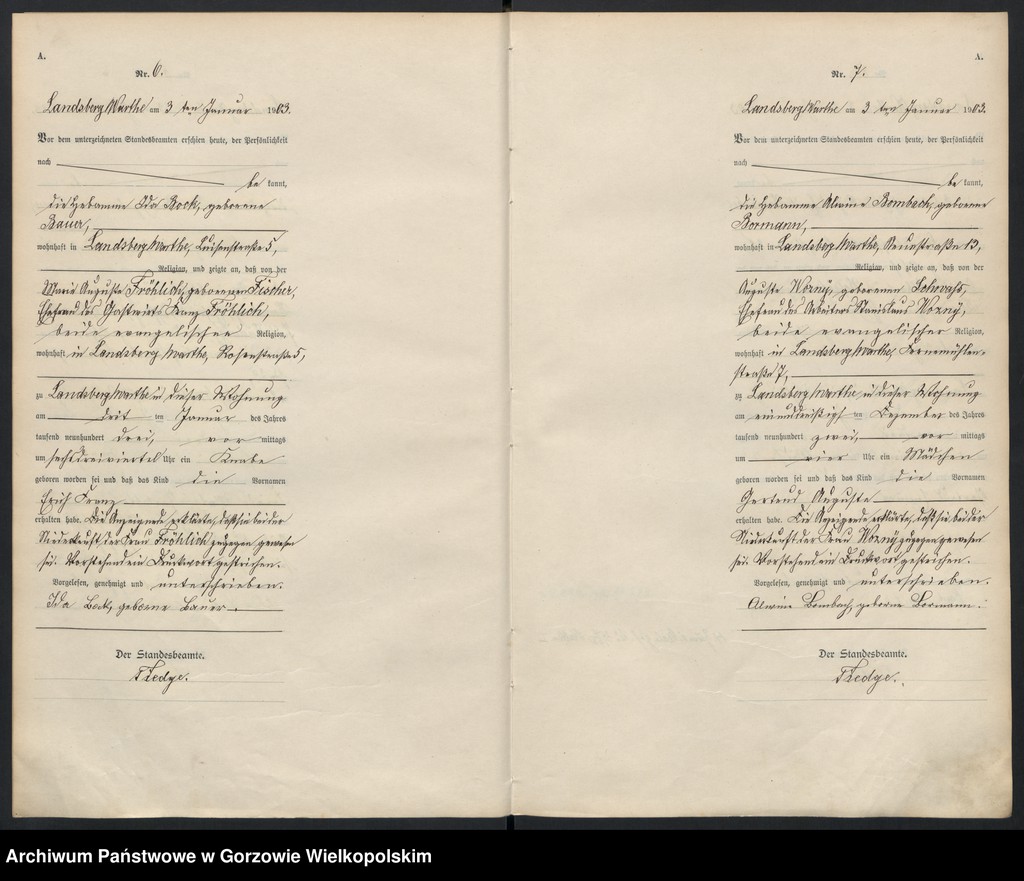 A.
Nr. 6.
Landsberg Warthe am 3 ten Januar 1903.
Vor dem unterzeichneten Standesbeamten erschien heute, der Persönlichkeit
nach
be kannt,
die Hebamme Ida Bock, geborene
Bauer,
wohnhaft in Landsberg Warthe, Luisenstraße 5,
Religion, und zeigte an, daß von der
Marie Auguste Fröhlich, geborenen Fischer,
Ehefrau des Gastwirts Franz Fröhlich,
beide evangelischer Religion,
wohnhaft in Landsberg Warthe, Rosenstraße 5,
zu Landsberg Warthe in dieser Wohnung
am drit ten Januar des Jahres
tausend neunhundert drei, vor mittags
um sechsdreiviertel Uhr ein Knabe
geboren worden sei und daß das Kind die Vornamen
Erich Franz
erhalten habe. Die Anzeigende erklärte, daß sie bei der
Niederkunft der Frau Fröhlich zugegen gewesen
sei. Vorstehend ein Druckwort gestrichen.
Vorgelesen, genehmigt und unterschrieben.
Ida Bock, geborne Bauer
Der Standesbeamte.
Tiedge.
A.
Nr. 7.
Landsberg Warthe am 3 ten Januar 1903.
Vor dem unterzeichneten Standesbeamten erschien heute, der Persönlichkeit
nach
be kannt,
die Hebamme Alwine Bombach, geborene
Bormann,
wohnhaft in Landsberg Warthe, 13,
Religion, und zeigte an, daß von der
Auguste Wozny, geborenen
Ehefrau des Arbeiters Stanislaus Wozny,
beide evangelischer Religion,
wohnhaft in Landsberg Warthe,
straße 7,
zu Landsberg Warthe in dieser Wohnung
am einunddreißigs ten Dezember des Jahres
tausend neunhundert zwei, vor mittags
um vier Uhr ein Mädchen
geboren worden sei und daß das Kind die Vornamen
Gertrud Auguste
erhalten habe. Die Anzeigende erklärte, daß sie bei der
Niederkunft der Frau Wozny zugegen gewesen
sei. Vorstehend ein Druckwort gestrichen.
Vorgelesen, genehmigt und unterschrieben.
Alwine Bombach, geborne Bormann.
Der Standesbeamte.
Tiedge.
Archiwum Państwowe w Gorzowie Wielkopolskim